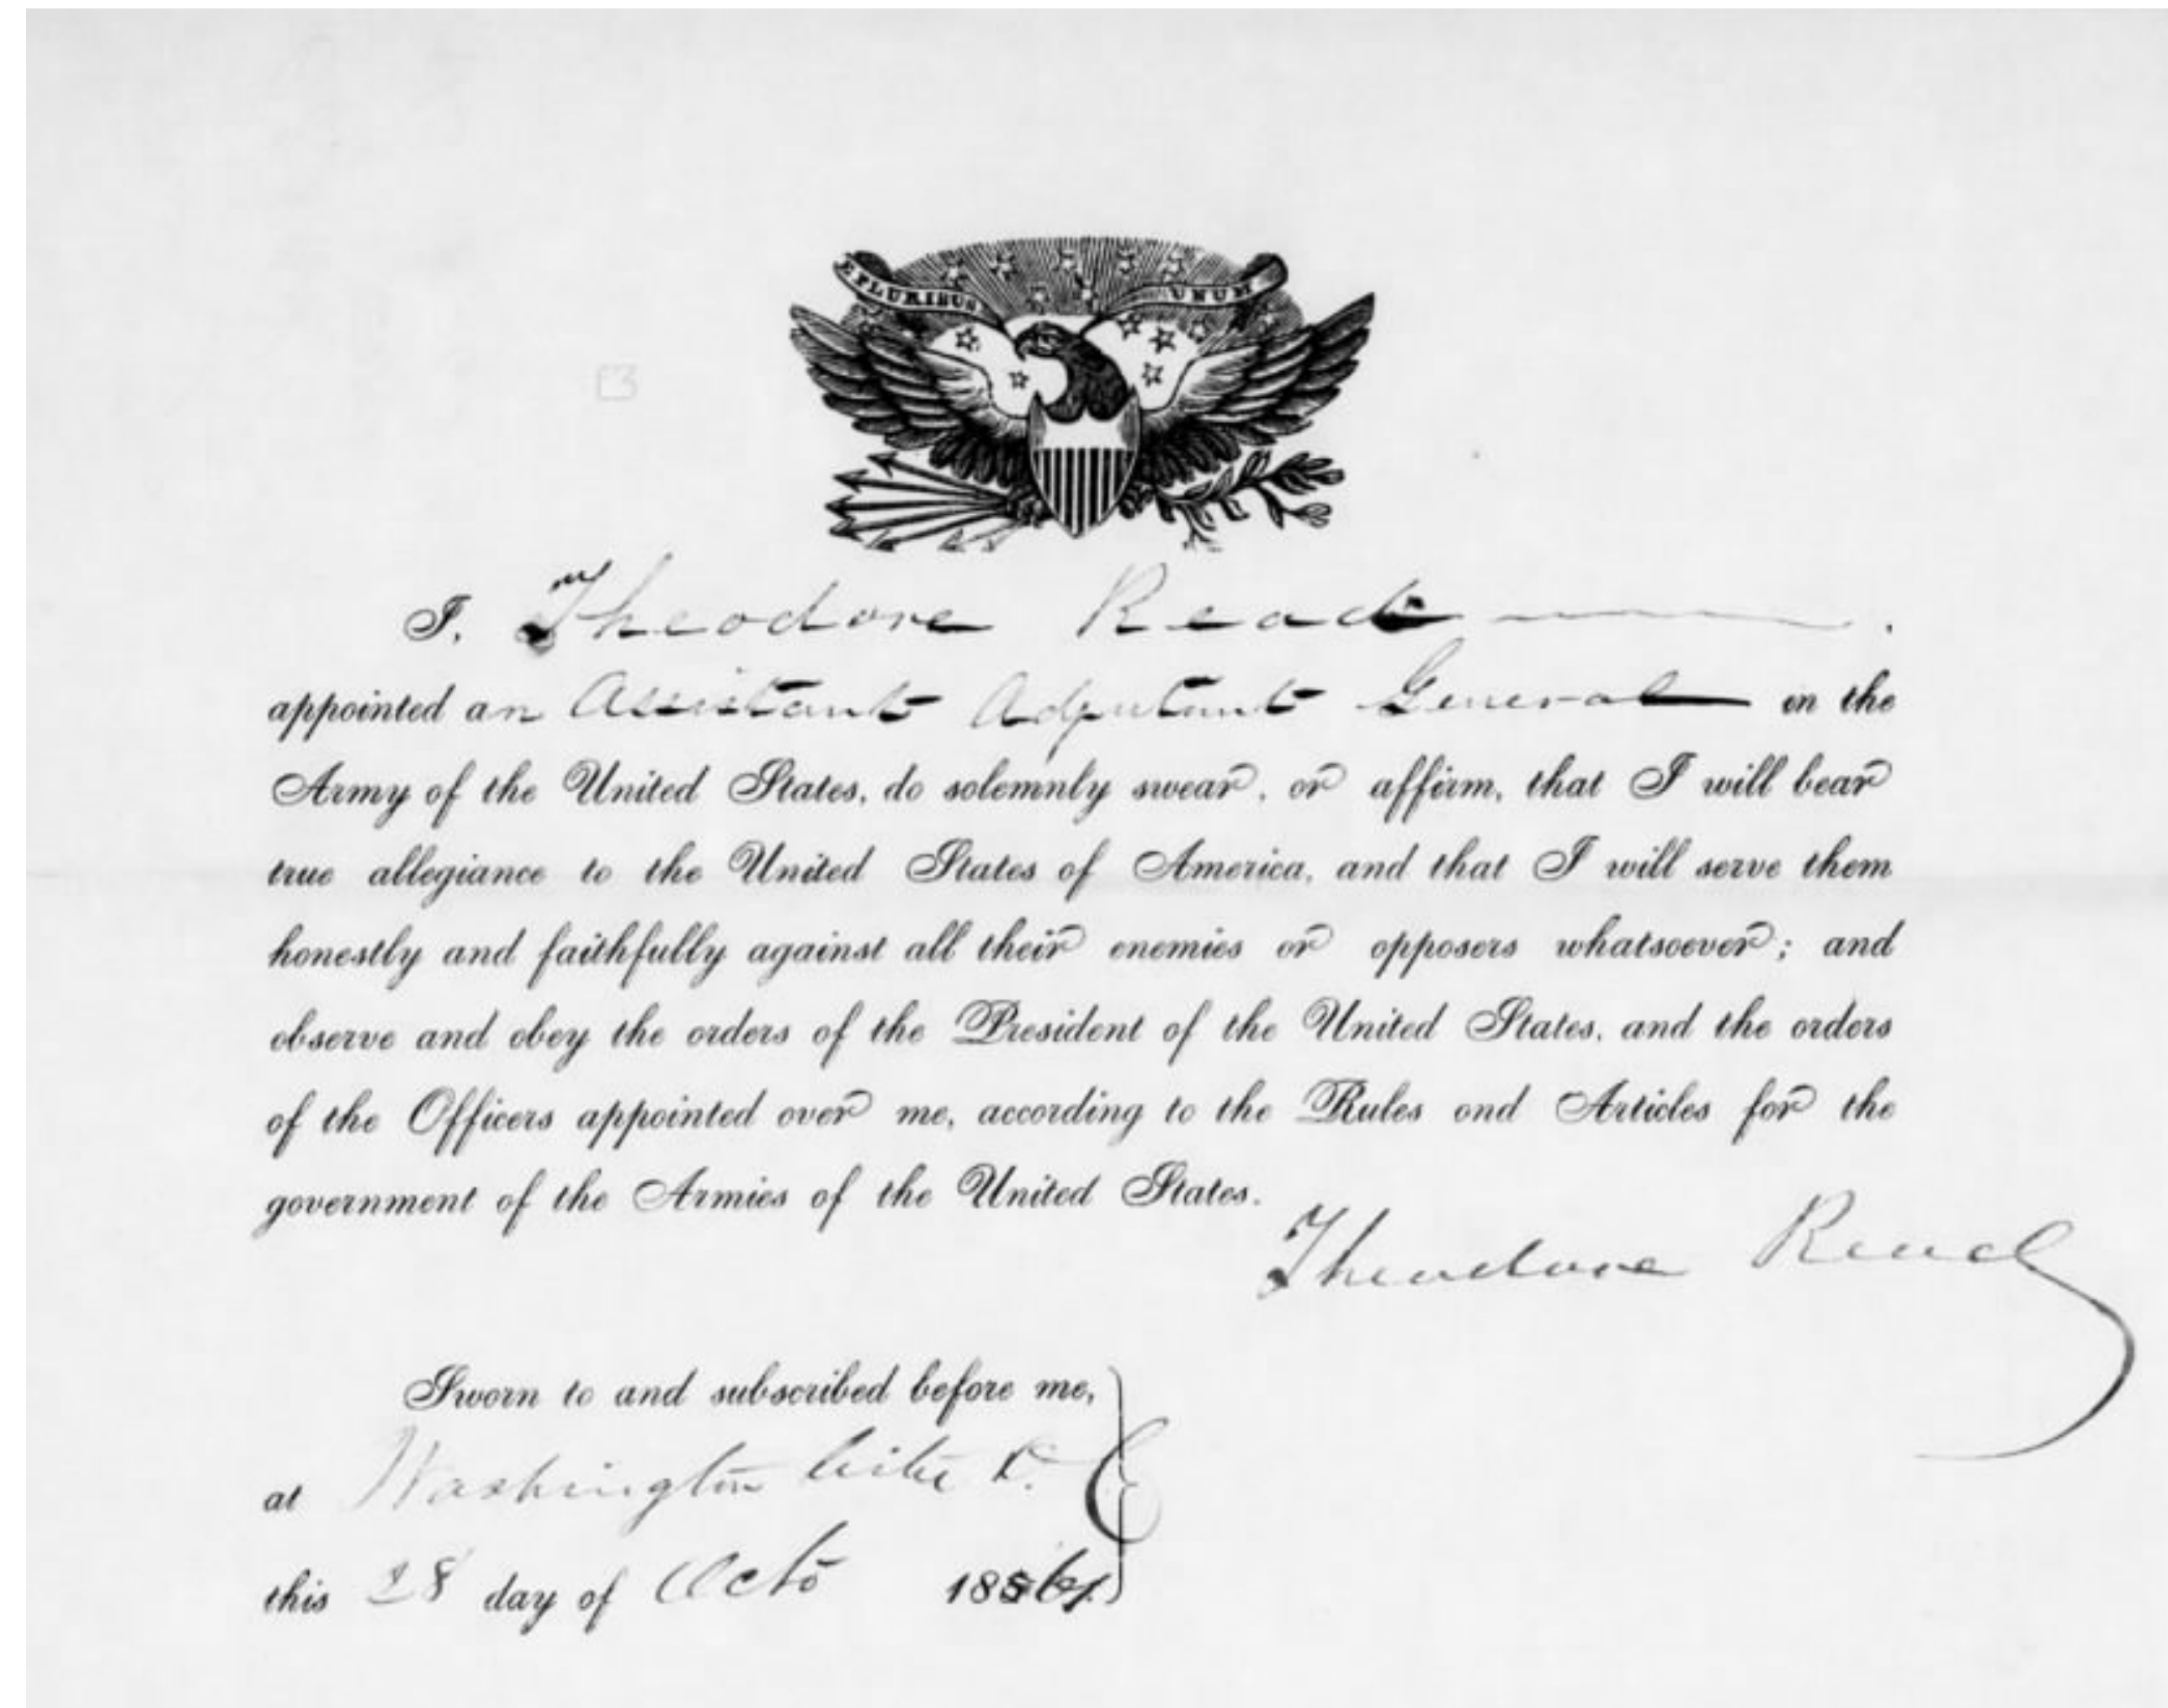 E PLURIBUS UNUM
I, Theodore Read
appointed an Assistant Adjutant General in the
Army of the United States, do solemnly swear, or affirm, that I will bear
true allegiance to the United States of America, and that I will serve them
honestly and faithfully against all their enemies or opposers whatsoever; and
observe and obey the orders of the President of the United States, and the orders
of the Officers appointed over me, according to the Rules ond Articles for the
government of the Armies of the United States.
Theodore Read
Sworn to and subscribed before me,
at Washington City D.C.
this 28 day of Octo 1861